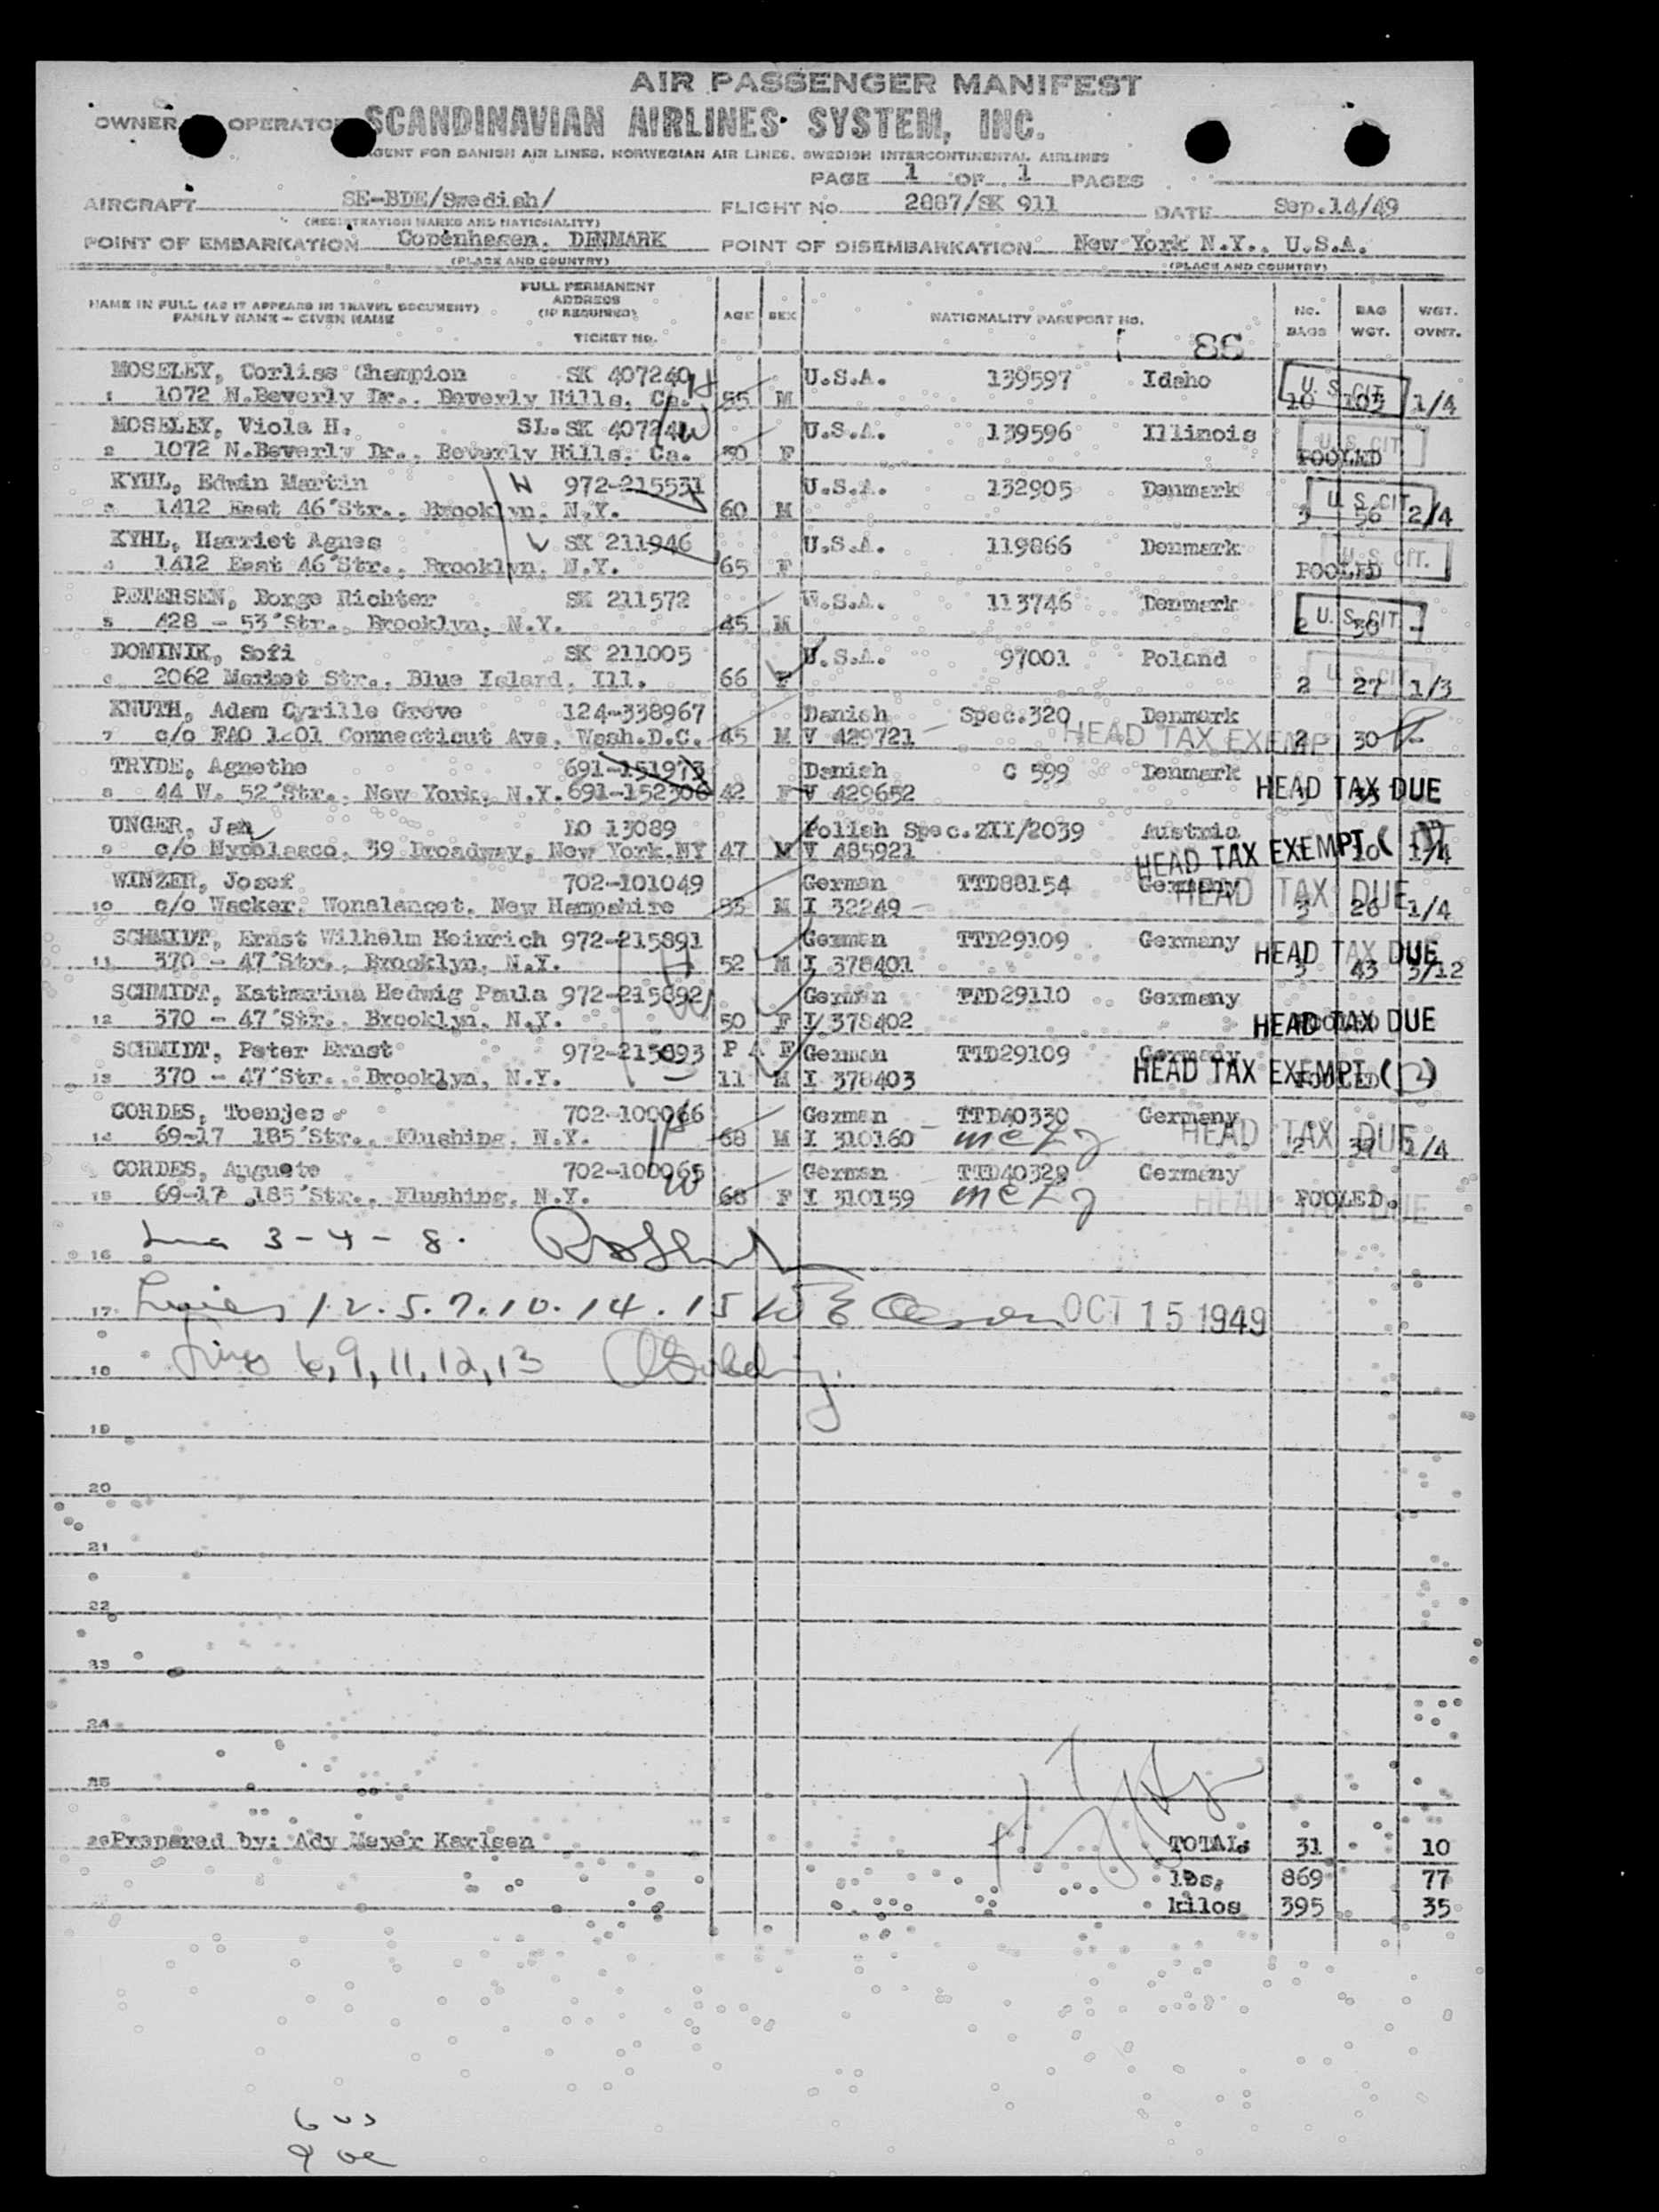 AIR PASSENGER MANIFEST
OWNER OPERATOR SCANDINAVIAN AIRLINES SYSTEM, INC.
AGENT FOR DANISH AIR LINES, NORWEGIAN AIR LINES, SWEDISH INTERCONTINENTAL AIRLINES
PAGE 1 OF 1 PAGES
AIRCRAFT SE-BDE/Swedish/ FLIGHT No. 2087/SK 911 DATE Sep.14/49
(REGISTRATION MARKS AND NATIONALITY)
POINT OF EMBARKATION Copenhagen, DENMARK POINT OF DISEMBARKATION New York N.Y., U.S.A.
(PLACE AND COUNTRY) (PLACE AND COUNTRY)
NAME IN FULL (AS IT APPEARS IN TRAVEL DOCUMENT) FAMILY NAME - GIVEN NAME FULL PERMANENT ADDRESS (IF REQUIRED) TICKET No. AGE SEX NATIONALITY PASSPORT No. No. BAGS BAG WGT. WGT. OVWT.
MOSELEY, Corliss Champion SK 407240 U.S.A. 139597 Idaho U. S. CIT.
1 1072 N.Beverly Dr., Beverly Hills, Ca. 55 M 10 103 1/4
MOSELEY, Viola H. SL.SK 40724 U.S.A. 139596 Illinois U. S. CIT
2 1072 N.Beverly Dr., Beverly Hills, Ca. 50 F POOLED
KYHL, Edwin Martin H 972-215531 U.S.A. 132905 Denmark U. S. CIT.
3 1412 East 46'Str., Brooklyn, N.Y. 60 M 3 56 2/4
KYHL, Harriet Agnes SK 211946 U.S.A. 119866 Denmark U. S. CIT.
4 1412 East 46'Str., Brooklyn, N.Y. 65 F POOLED
PETERSEN, Borge Richter SK 211572 U.S.A. 113746 Denmark U. S. CIT.
5 428 - 53'Str., Brooklyn, N.Y. 45 M 2 30 -
DOMINIK, Sofi SK 211005 U.S.A. 97001 Poland U. S. CIT
6 2062 Market Str., Blue Island, Ill. 66 F 2 27 1/3
KNUTH, Adam Cyrille Greve 124-338967 Danish Spec.320 Denmark
7 c/o FAO 1201 Connecticut Ave, Wash.D.C. 45 M V 429721 HEAD TAX EXEMP 2 30 -
TRYDE, Agnethe 691-151973 Danish C 599 Denmark HEAD TAX DUE
8 44 W. 52'Str., New York, N.Y. 691-152306 42 F V 429652
UNGER, Jan LO 13089 Polish Spec.ZII/2039 Austria
9 c/o Hypolasco, 39 Broadway, New York.NY 47 M V 485921 HEAD TAX EXEMPT ( 1/4
WINZER, Josef 702-101049 German TTD88154 Germany HEAD TAX DUE
10 c/o Wacker, Wonalancet, New Hampshire 55 M I 32249 3 26 1/4
SCHMIDT, Ernst Wilhelm Heinrich 972-215891 German TTD29109 Germany HEAD TAX DUE
11 370 - 47'Str., Brooklyn, N.Y. H 52 M I 378401 3 43 3/12
SCHMIDT, Katharina Hedwig Paula 972-215892 German TTD29110 Germany
12 370 - 47'Str., Brooklyn, N.Y. 50 F I 378402 HEAD TAX DUE POOLED
SCHMIDT, Peter Ernst 972-215893 German TTD29109 Germany
13 370 - 47'Str., Brooklyn, N.Y. 11 M I 378403 HEAD TAX EXEMPT (2) POOLED
CORDES, Toenjes 702-100066 German TTD40330 Germany
14 69-17 185'Str., Flushing, N.Y. 68 M I 310160 HEAD TAX DUE 2 39 2/4
CORDES, Auguste 702-100065 German TTD40329 Germany
15 69-17 185'Str., Flushing, N.Y. 68 F I 310159 HEAD TAX DUE POOLED.
16 3-4-8.
17 Lines 1.2.5.7.10.14.15 OCT 15 1949
18 Lines 6,9,11,12,13
19
20
21
22
23
24
25
26 Prepared by: Ady Meyer Karlsen TOTAL: 31 10
lbs. 869 77
kilos 395 35